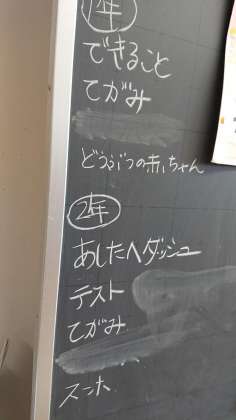 1年
できること
てがみ
どうぶつの赤ちゃん
2年
あしたへダッシュ
テスト
てがみ
スーホ